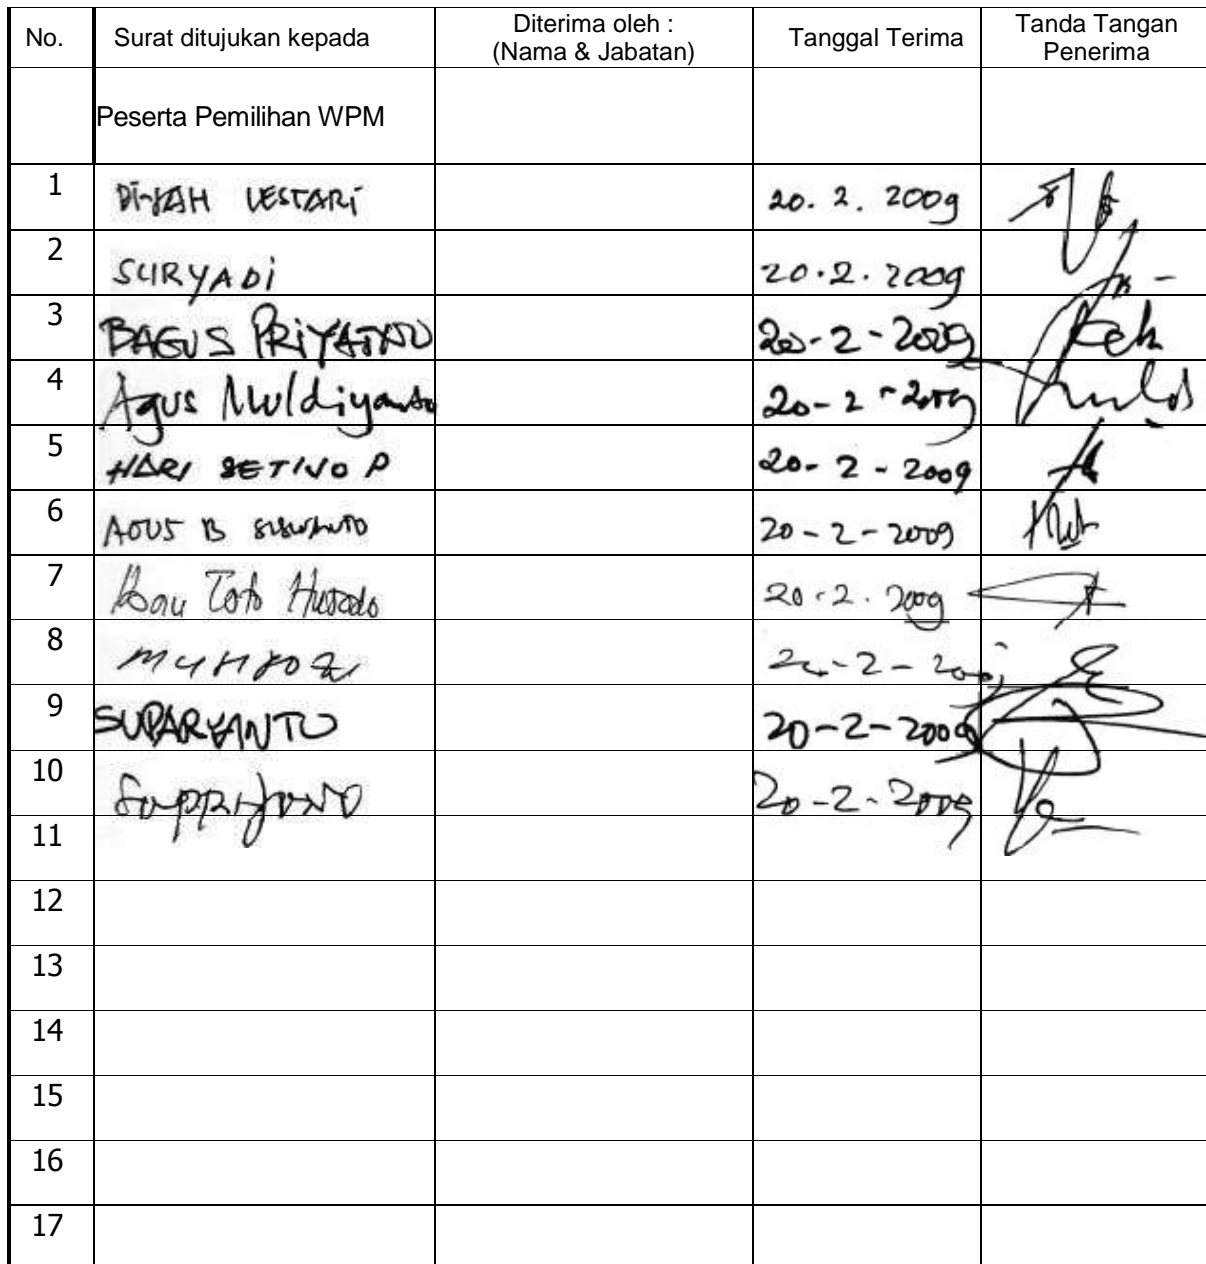 No. Surat ditujukan kepada Diterima oleh : (Nama & Jabatan) Tanggal Terima Tanda Tangan Penerima
Peserta Pemilihan WPM
1 DiYAH LESTARi 20. 2. 2009
2 SURYADi 20.2.2009
3 BAGUS PRiYATNO 20-2-2009
4 Agus Muldiyanto 20-2-2009
5 HARI SETIYO P 20-2-2009
6 AGUS B SISWANTO 20-2-2009
7 Toto 20.2.2009
8 20-2-2009
9 SUPARYANTO 20-2-2009
10 20-2-2009
11
12
13
14
15
16
17